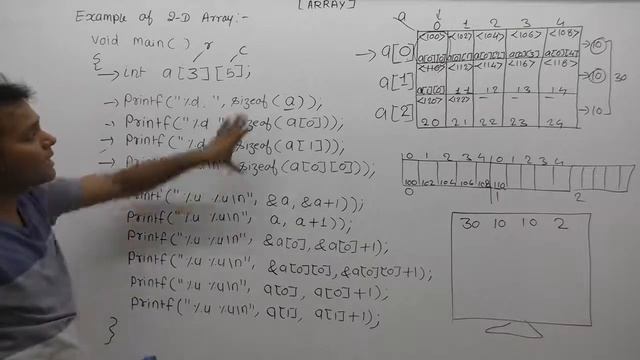 [ARRAY]
Example of 2-D Array:-
void main( )
r c
{
→ int a[3][5];
→ Printf("%d. ", sizeof(a));
→ Printf("%d ", sizeof(a[0]));
→ Printf("%d sizeof(a[1]));
→ sizeof(a[0][0]);
Printf("%u %u\n", &a, &a+1));
Printf("%u %u\n", a, a+1));
Printf("%u %u\n", &a[0], &a[0]+1);
Printf("%u %u\n", &a[0][0], &a[0][0]+1);
Printf("%u %u\n", a[0], a[0]+1);
Printf("%u %u\n", a[1], a[1]+1);
}
a 0 1 2 3 4
<100> <102> <104> <106> <108>
→ a[0] a[0][0] a[0][1] a[0][2] a[0][3] a[0][4] → 10
<110> <112> <114> <116> <118>
a[1] 11 12 13 14 → 10 30
<120> <122> - - -
a[2] 20 21 22 23 24 → 10
0 1 2 3 4 0 1 2 3 4
100 102 104 106 108 110
0 1 2
30 10 10 2